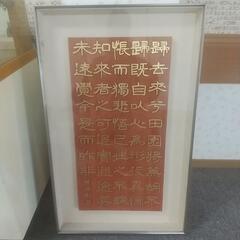 歸去來兮田園將蕪胡不
歸既自以心爲形役奚惆
悵而獨悲悟已往之不諫
知來者之可追實迷途其
未遠覺今是而昨非